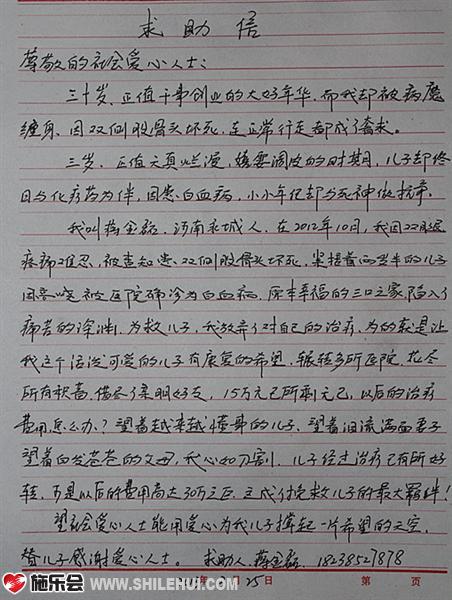 求助信
尊敬的社会爱心人士：
三十岁，正值干事创业的大好年华，而我却被病魔
缠身，因双侧股骨头坏死，连正常行走都成了奢求。
三岁，正值天真烂漫，嬉耍调皮的时期，儿子却终
日与化疗药为伴，因患白血病，小小年纪却与死神做抗争。
我叫蒋金磊，河南永城人，在2012年10月，我因双腿
疼痛难忍，被查知患双侧股骨头坏死，紧接着两岁半的儿子
因高烧被医院确诊为白血病，原本幸福的三口之家陷入了
痛苦的深渊，为救儿子，我放弃了对自己的治疗，为的就是让
我这个活泼可爱的儿子有康复的希望，辗转多所医院，花尽
所有积蓄，借尽了亲朋好友，15万元已所剩无已，以后的治疗
费用怎么办？望着越来越懂事的儿子，望着泪流满面妻子
望着白发苍苍的父母，我心如刀割，儿子经过治疗已有所好
转，可是以后的费用高达30万之巨，这成了挽救儿子的最大羁绊！
望社会爱心人士能用爱心为我儿子撑起一片希望的天空，
替儿子感谢爱心人士。 求助人：蒋金磊 18238527878
年 月 25 日 第 页
施乐会 WWW.SHILEHUI.COM